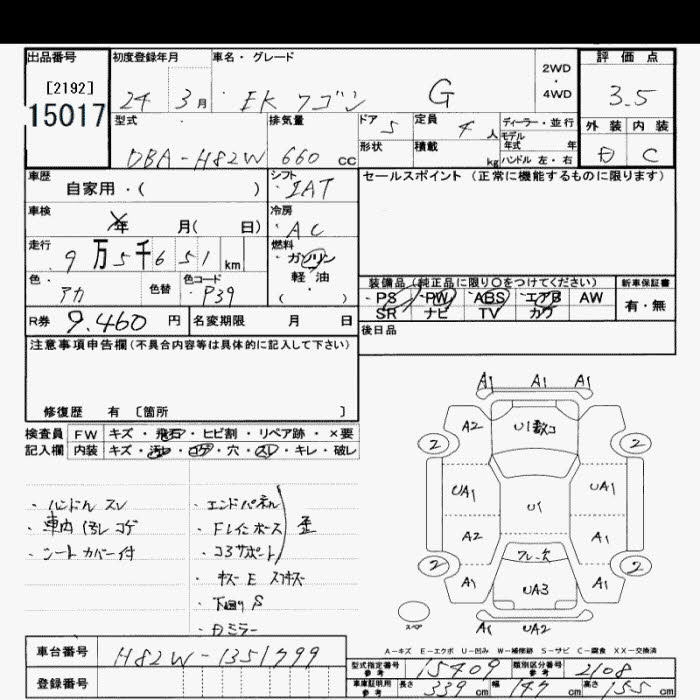 出品番号 初度登録年月 車名・グレード 評価点
[2192] 24 3月 EK ワゴン G 2WD・4WD 3.5
15017 型式 排気量 ドア 5 定員 4人 ディーラー・並行 外装 内装
モデル年式 年
DBA-H82W 660cc 形状 積載 kg ハンドル 左・右 C
車歴 シフト セールスポイント (正常に機能するものに限ります)
自家用・( ) IAT
車検 冷房
年 月( 日) AC
走行 燃料
9万5千651km ガソリン
軽油
( )
色 アカ 色替 色コード P39
装備品(純正品に限り〇をつけてください) 新車保証書
PS PW ABS エアB AW 有・無
SR ナビ TV カワ
R券 9.460円 名変期限 月 日 後日品
注意事項申告欄(不具合内容等は具体的に記入して下さい)
修復歴 有 〔箇所 〕
検査員記入欄 FW キズ・飛石・ヒビ割・リペア跡・×要
内装 キズ・汚れ・コゲ・穴・スレ・キレ・破レ
・ハンドル スレ
・車内 汚レ コゲ
・シートカバー付
・エンドパネル
・Fレインホース 歪
・コアサポート
・下回り S
・ミラー
A1 A1 A1
A2 U1
2 2
UA1 U1 UA1
A2 A1
2 2
A1 UA3 A1
A1 UA2
スペア
A-キズ E-エクボ U-凹み W-補修跡 S-サビ C-腐食 XX-交換済
車台番号 H82W-1351799
登録番号
型式指定番号 参考 15409 類別区分番号 参考 2108
車庫証明用 参考 長さ 339cm 幅 147cm 高さ 155cm